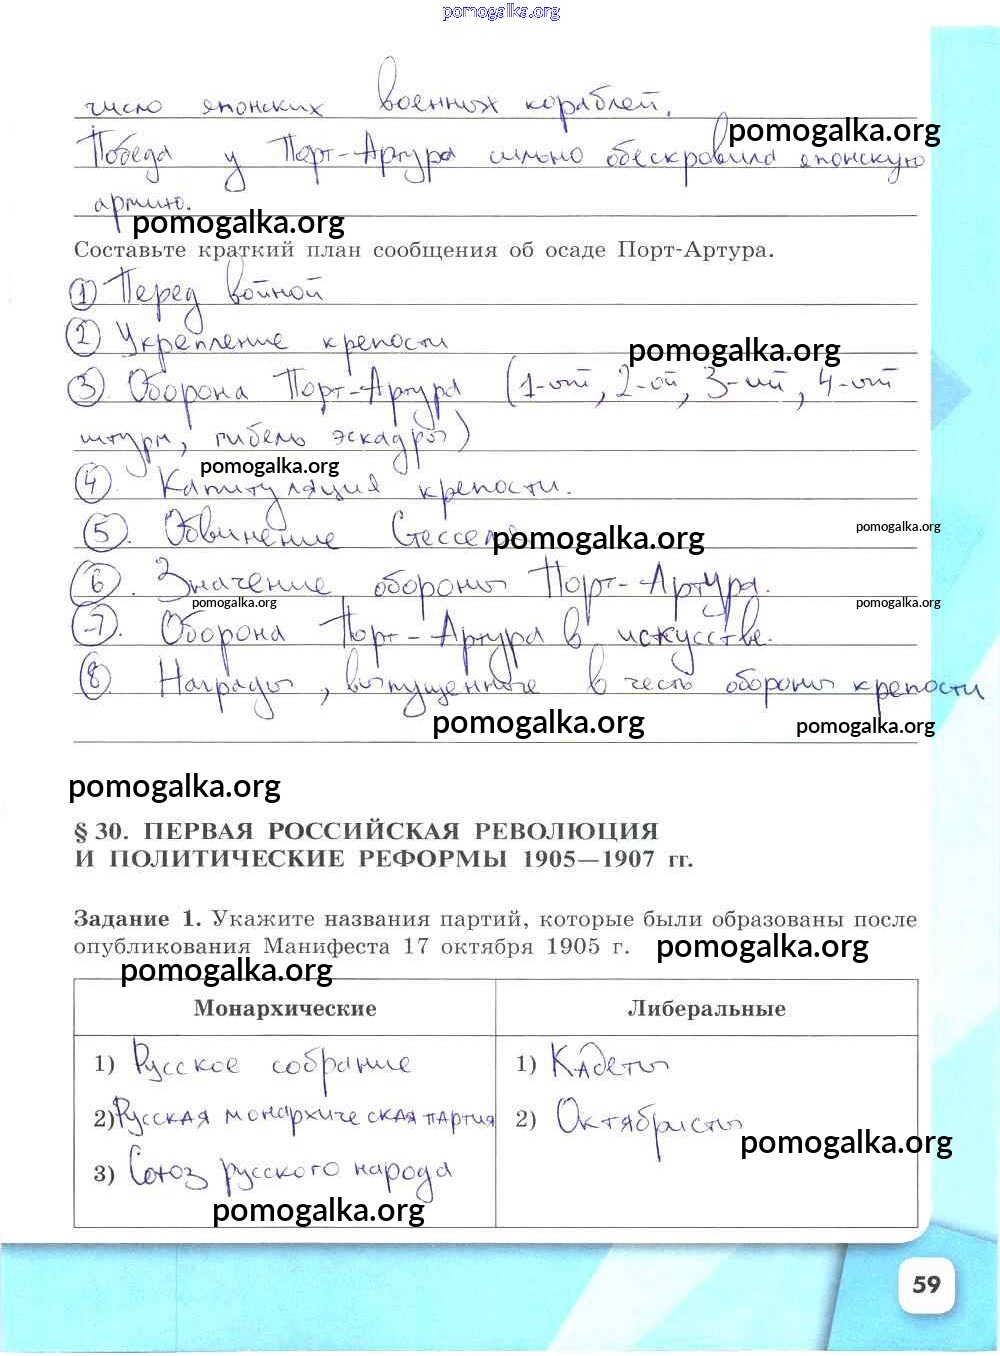 pomogalka.org
число японских военных кораблей.
pomogalka.org
Победа у Порт-Артура сильно обескровила японскую
армию.
pomogalka.org
Составьте краткий план сообщения об осаде Порт-Артура.
1) Перед войной
2) Укрепление крепости
pomogalka.org
3) Оборона Порт-Артура (1-ый, 2-ой, 3-ий, 4-ый
штурм, гибель эскадры)
pomogalka.org
4. Капитуляция крепости.
5. Обвинение Стесселя
pomogalka.org
pomogalka.org
6. Значение обороны Порт-Артура.
pomogalka.org
pomogalka.org
7. Оборона Порт-Артура в искусстве.
8. Награды, выпущенные в честь обороны крепости
pomogalka.org
pomogalka.org
pomogalka.org
§ 30. ПЕРВАЯ РОССИЙСКАЯ РЕВОЛЮЦИЯ
И ПОЛИТИЧЕСКИЕ РЕФОРМЫ 1905—1907 гг.
Задание 1. Укажите названия партий, которые были образованы после
опубликования Манифеста 17 октября 1905 г.
pomogalka.org
pomogalka.org
Монархические
Либеральные
1) Русское собрание
1) Кадеты
2) Русская монархическая партия
2) Октябристы
pomogalka.org
3) Союз русского народа
pomogalka.org
59